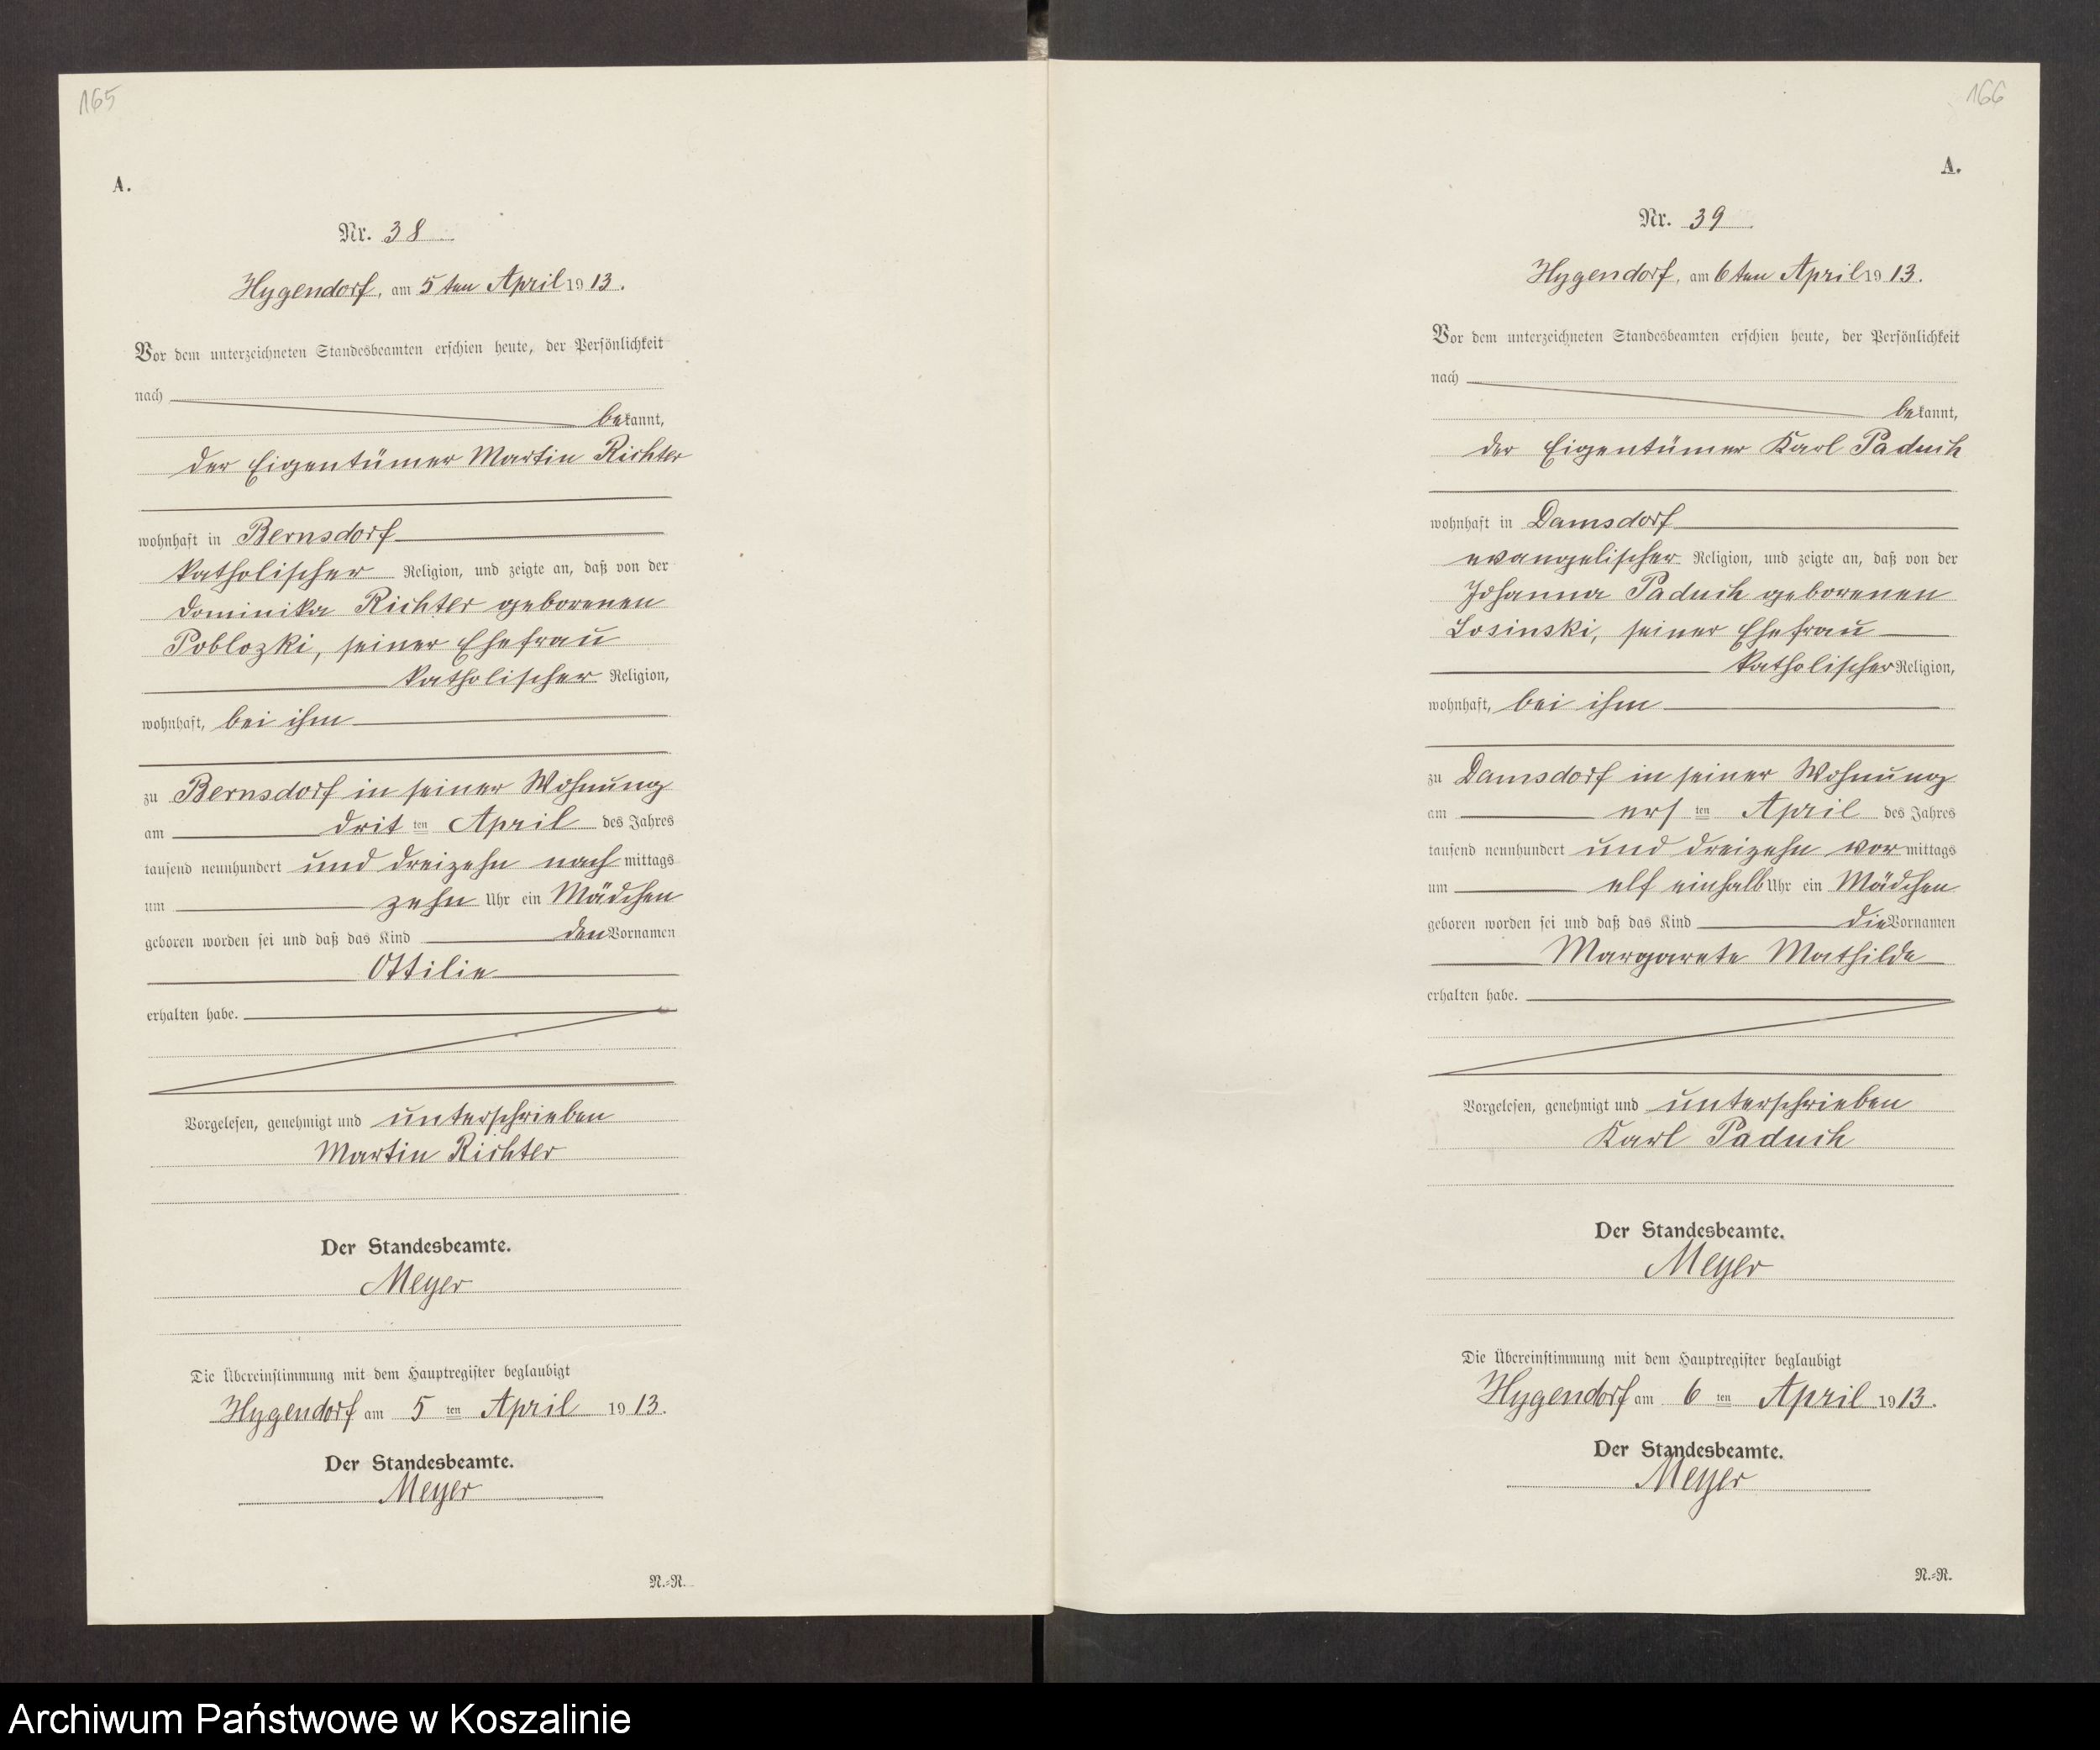 165
A.
Nr. 38
Hygendorf, am 5ten April 1913.
Vor dem unterzeichneten Standesbeamten erschien heute, der Persönlichkeit
nach
bekannt,
der Eigentümer Martin Richter
wohnhaft in Bernsdorf
katholischer Religion, und zeigte an, daß von der
Dominika Richter geborenen
Poblozki, seiner Ehefrau
katholischer Religion,
wohnhaft, bei ihm
zu Bernsdorf in seiner Wohnung
am dritten April des Jahres
tausend neunhundert und dreizehn nachmittags
um zehn Uhr ein Mädchen
geboren worden sei und daß das Kind den Vornamen
Ottilie
erhalten habe.
Vorgelesen, genehmigt und unterschrieben
Martin Richter
Der Standesbeamte.
Meyer
Die Übereinstimmung mit dem Hauptregister beglaubigt
Hygendorf am 5ten April 1913.
Der Standesbeamte.
Meyer
N.=R.
166
A.
Nr. 39
Hygendorf, am 6ten April 1913.
Vor dem unterzeichneten Standesbeamten erschien heute, der Persönlichkeit
nach
bekannt,
der Eigentümer Karl Paduch
wohnhaft in Damsdorf
evangelischer Religion, und zeigte an, daß von der
Johanna Paduch geborenen
Losinski, seiner Ehefrau
katholischer Religion,
wohnhaft, bei ihm
zu Damsdorf in seiner Wohnung
am ersten April des Jahres
tausend neunhundert und dreizehn vormittags
um elf einhalb Uhr ein Mädchen
geboren worden sei und daß das Kind die Vornamen
Margarete Mathilde
erhalten habe.
Vorgelesen, genehmigt und unterschrieben
Karl Paduch
Der Standesbeamte.
Meyer
Die Übereinstimmung mit dem Hauptregister beglaubigt
Hygendorf am 6ten April 1913.
Der Standesbeamte.
Meyer
N.=R.
Archiwum Państwowe w Koszalinie